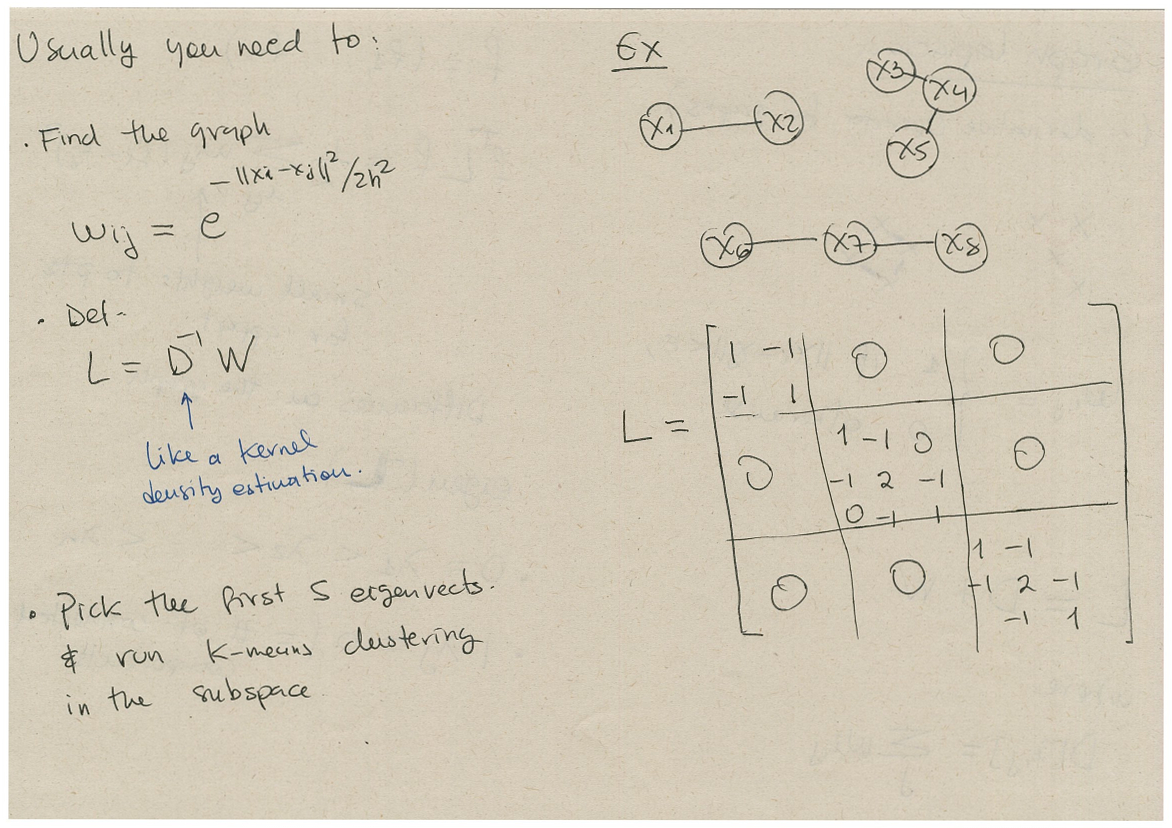 Usually you need to:
· Find the graph
wij = e^-||xi-xj||²/2h²
· Def-
L = D⁻¹ W
like a kernel
density estimation.
· Pick the first S eigenvects.
& run K-means clustering
in the subspace
Ex
x1 x2 x3 x4 x5
x6 x7 x8
L =
1 -1 0 0
-1 1
0 1 -1 0 0
-1 2 -1
0 -1 1
0 0 1 -1
-1 2 -1
-1 1